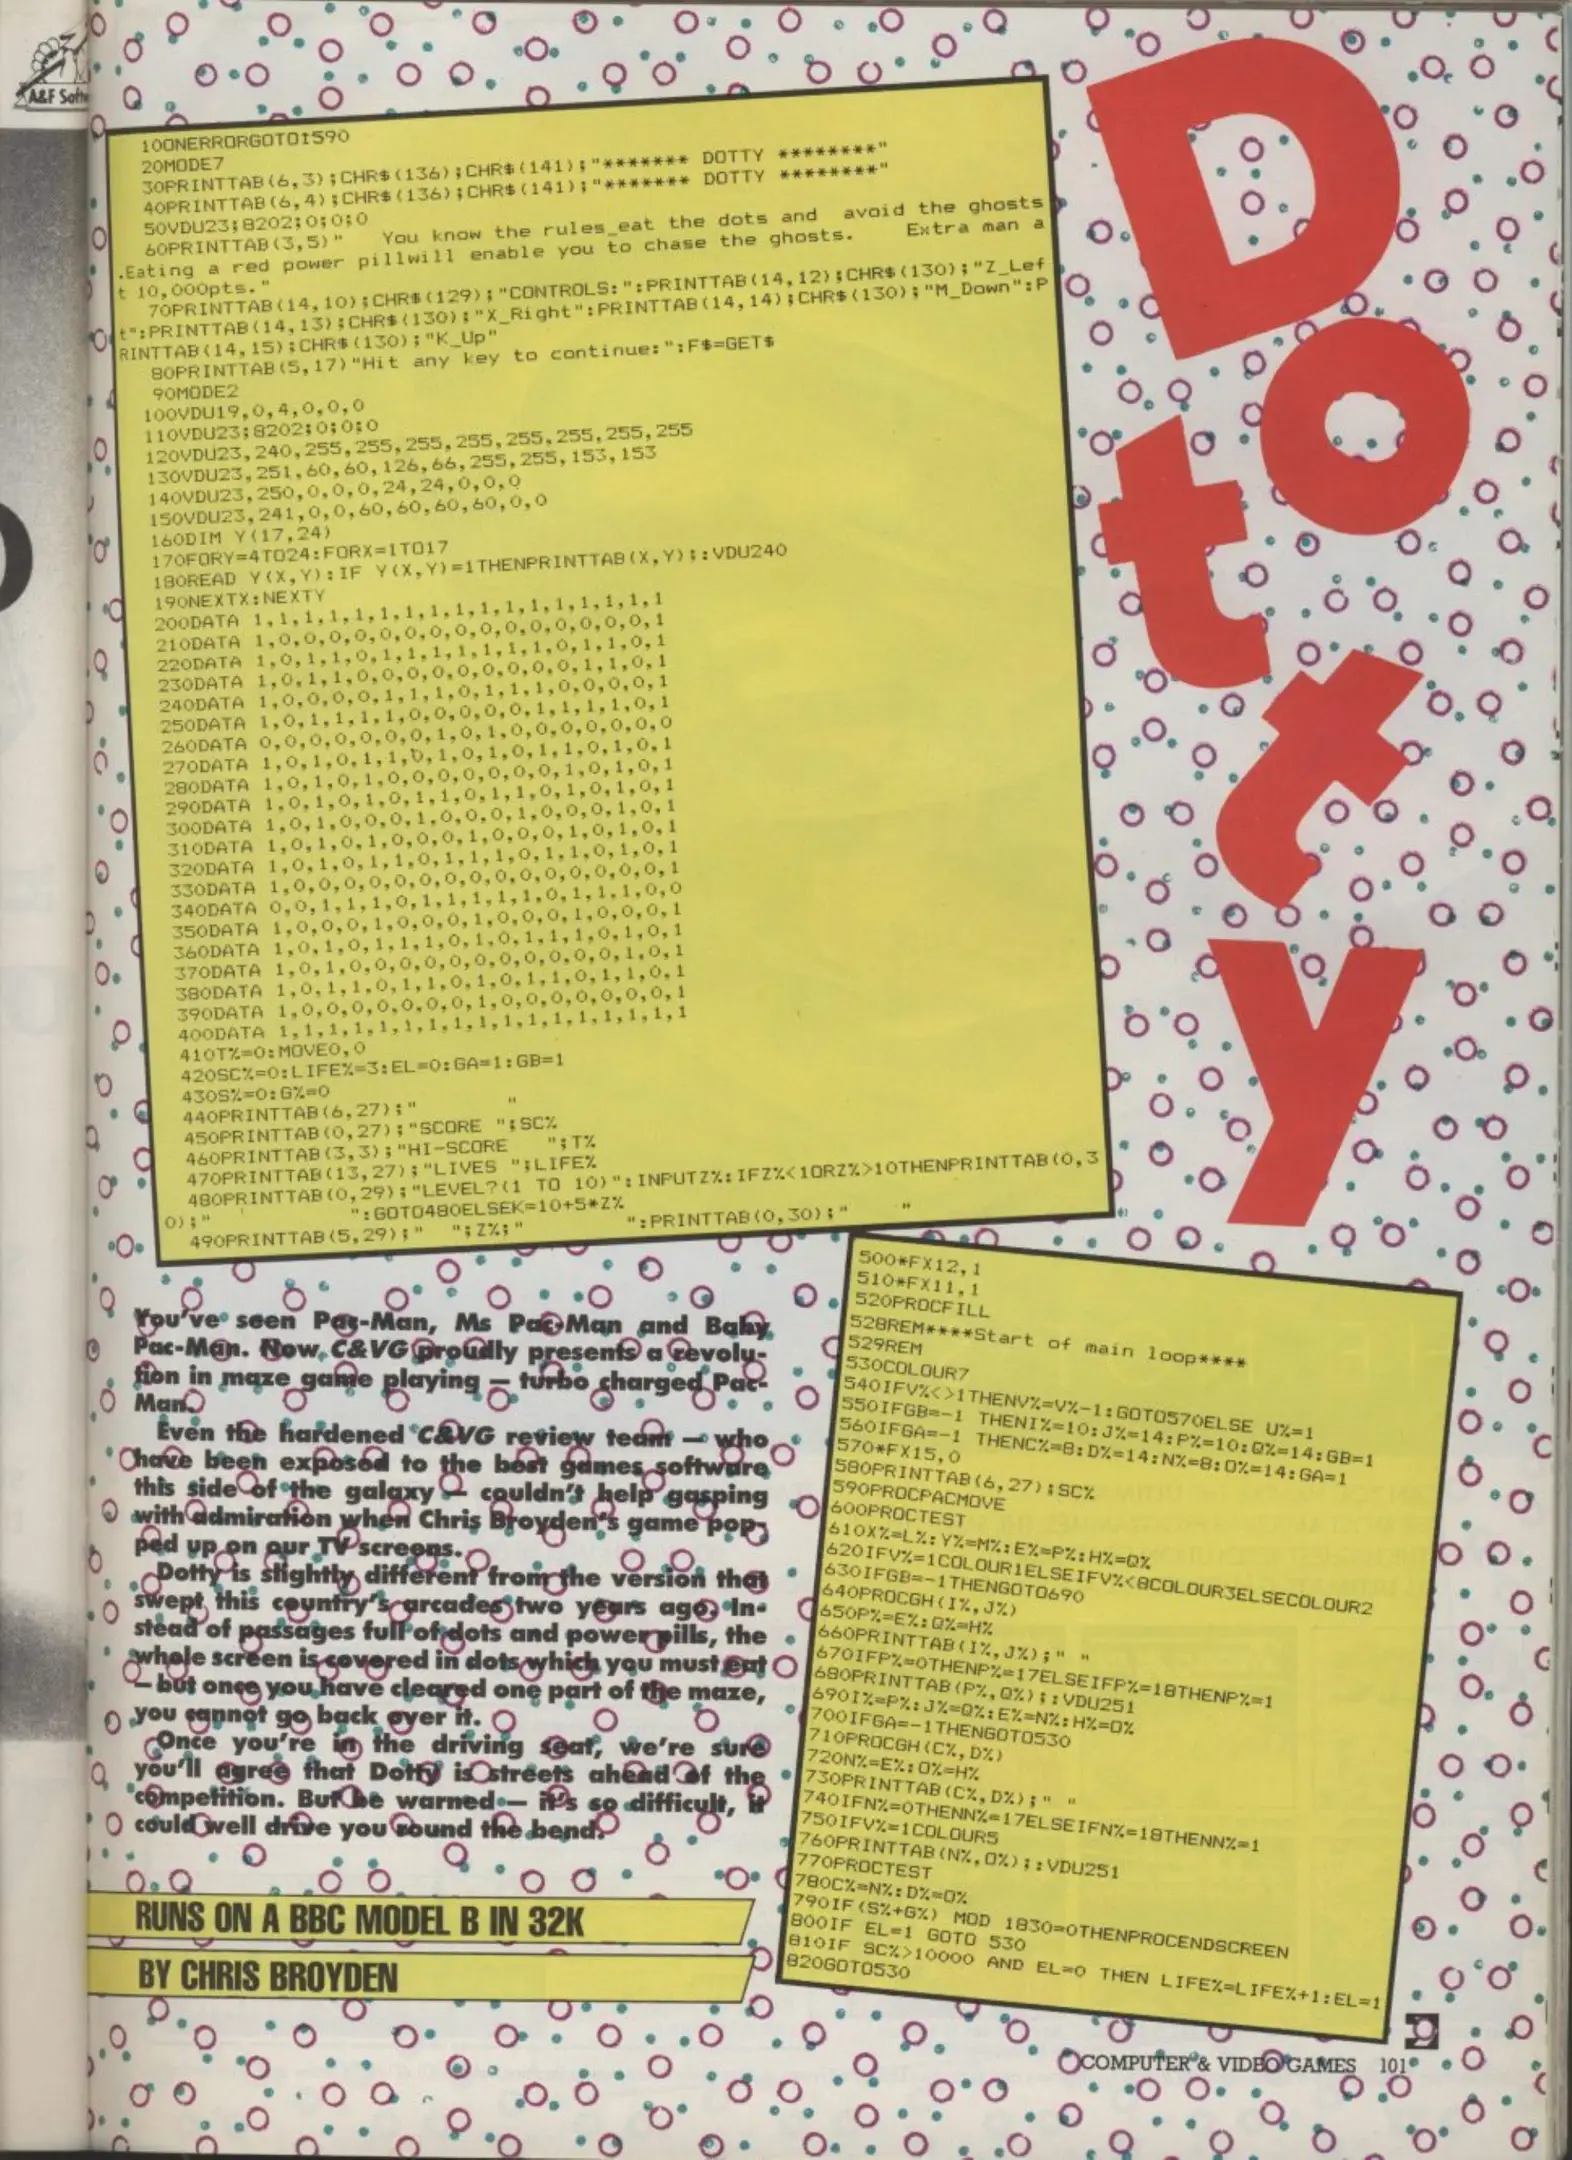 A&F Softw
Dotty
10ONERRORGOTO1590
20MODE7
30PRINTTAB(6,3);CHR$(136);CHR$(141);"******* DOTTY ********"
40PRINTTAB(6,4);CHR$(136);CHR$(141);"******* DOTTY ********"
50VDU23;8202;0;0;0
60PRINTTAB(3,5)"   You know the rules_eat the dots and  avoid the ghosts
.Eating a red power pillwill enable you to chase the ghosts.    Extra man a
t 10,000pts."
70PRINTTAB(14,10);CHR$(129);"CONTROLS:":PRINTTAB(14,12);CHR$(130);"Z_Lef
t":PRINTTAB(14,13);CHR$(130);"X_Right":PRINTTAB(14,14);CHR$(130);"M_Down":P
RINTTAB(14,15);CHR$(130);"K_Up"
80PRINTTAB(5,17)"Hit any key to continue:":F$=GET$
90MODE2
100VDU19,0,4,0,0,0
110VDU23;8202;0;0;0
120VDU23,240,255,255,255,255,255,255,255,255
130VDU23,251,60,60,126,66,255,255,153,153
140VDU23,250,0,0,0,24,24,0,0,0
150VDU23,241,0,0,60,60,60,60,0,0
160DIM Y(17,24)
170FORY=4TO24:FORX=1TO17
180READ Y(X,Y):IF Y(X,Y)=1THENPRINTTAB(X,Y);:VDU240
190NEXTX:NEXTY
200DATA 1,1,1,1,1,1,1,1,1,1,1,1,1,1,1,1,1
210DATA 1,0,0,0,0,0,0,0,0,0,0,0,0,0,0,0,1
220DATA 1,0,1,1,0,1,1,1,1,1,1,1,0,1,1,0,1
230DATA 1,0,1,1,0,0,0,0,0,0,0,0,0,1,1,0,1
240DATA 1,0,0,0,0,1,1,1,0,1,1,1,0,0,0,0,1
250DATA 1,0,1,1,1,1,0,0,0,0,0,1,1,1,1,0,1
260DATA 0,0,0,0,0,0,0,1,0,1,0,0,0,0,0,0,0
270DATA 1,0,1,0,1,1,0,1,0,1,0,1,1,0,1,0,1
280DATA 1,0,1,0,1,0,0,0,0,0,0,0,1,0,1,0,1
290DATA 1,0,1,0,1,0,1,1,0,1,1,0,1,0,1,0,1
300DATA 1,0,1,0,0,0,1,0,0,0,1,0,0,0,1,0,1
310DATA 1,0,1,0,1,0,0,0,1,0,0,0,1,0,1,0,1
320DATA 1,0,1,0,1,1,0,1,1,1,0,1,1,0,1,0,1
330DATA 1,0,0,0,0,0,0,0,0,0,0,0,0,0,0,0,1
340DATA 0,0,1,1,1,0,1,1,1,1,1,0,1,1,1,0,0
350DATA 1,0,0,0,1,0,0,0,1,0,0,0,1,0,0,0,1
360DATA 1,0,1,0,1,1,1,0,1,0,1,1,1,0,1,0,1
370DATA 1,0,1,0,0,0,0,0,0,0,0,0,0,0,1,0,1
380DATA 1,0,1,1,0,1,1,0,1,0,1,1,0,1,1,0,1
390DATA 1,0,0,0,0,0,0,0,1,0,0,0,0,0,0,0,1
400DATA 1,1,1,1,1,1,1,1,1,1,1,1,1,1,1,1,1
410T%=0:MOVE0,0
420SC%=0:LIFE%=3:EL=0:GA=1:GB=1
430S%=0:G%=0
440PRINTTAB(6,27);"          "
450PRINTTAB(0,27);"SCORE ";SC%
460PRINTTAB(3,3);"HI-SCORE    ";T%
470PRINTTAB(13,27);"LIVES ";LIFE%
480PRINTTAB(0,29);"LEVEL?(1 TO 10)":INPUTZ%:IFZ%<1ORZ%>10THENPRINTTAB(0,3
0);"               ":GOTO480ELSEK=10+5*Z%
490PRINTTAB(5,29);"   ";Z%;"           ":PRINTTAB(0,30);"      "
500*FX12,1
510*FX11,1
520PROCFILL
528REM****Start of main loop****
529REM
530COLOUR7
540IFV%<>1THENV%=V%-1:GOTO570ELSE U%=1
550IFGB=-1 THENI%=10:J%=14:P%=10:Q%=14:GB=1
560IFGA=-1 THENC%=8:D%=14:N%=8:O%=14:GA=1
570*FX15,0
580PRINTTAB(6,27);SC%
590PROCPACMOVE
600PROCTEST
610X%=L%:Y%=M%:E%=P%:H%=Q%
620IFV%=1COLOUR1ELSEIFV%<8COLOUR3ELSECOLOUR2
630IFGB=-1THENGOTO690
640PROCGH(I%,J%)
650P%=E%:Q%=H%
660PRINTTAB(I%,J%);" "
670IFP%=0THENP%=17ELSEIFP%=18THENP%=1
680PRINTTAB(P%,Q%);:VDU251
690I%=P%:J%=Q%:E%=N%:H%=O%
700IFGA=-1THENGOTO530
710PROCGH(C%,D%)
720N%=E%:O%=H%
730PRINTTAB(C%,D%);" "
740IFN%=0THENN%=17ELSEIFN%=18THENN%=1
750IFV%=1COLOUR5
760PRINTTAB(N%,O%);:VDU251
770PROCTEST
780C%=N%:D%=O%
790IF(S%+G%) MOD 1830=0THENPROCENDSCREEN
800IF EL=1 GOTO 530
810IF SC%>10000 AND EL=0 THEN LIFE%=LIFE%+1:EL=1
820GOTO530
You've seen Pac-Man, Ms Pac-Man and Baby
Pac-Man. Now C&VG proudly presents a revolu-
tion in maze game playing — turbo charged Pac-
Man.
Even the hardened C&VG review team — who
have been exposed to the best games software
this side of the galaxy — couldn't help gasping
with admiration when Chris Broyden's game pop-
ped up on our TV screens.
Dotty is slightly different from the version that
swept this country's arcades two years ago. In-
stead of passages full of dots and power pills, the
whole screen is covered in dots which you must eat
— but once you have cleared one part of the maze,
you cannot go back over it.
Once you're in the driving seat, we're sure
you'll agree that Dotty is streets ahead of the
competition. But be warned — it's so difficult, it
could well drive you round the bend.
RUNS ON A BBC MODEL B IN 32K
BY CHRIS BROYDEN
COMPUTER & VIDEO GAMES 101